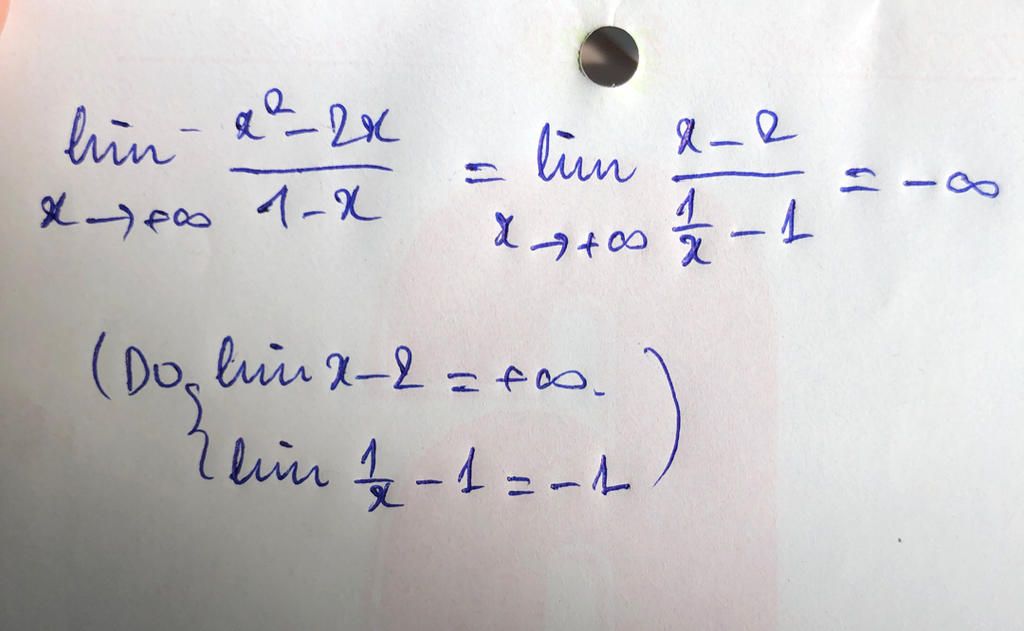 lim x→+∞ (x² - 2x)/(1 - x) = lim x→+∞ (x - 2)/(1/x - 1) = -∞
(Do { lim x - 2 = +∞.
lim 1/x - 1 = -1 )